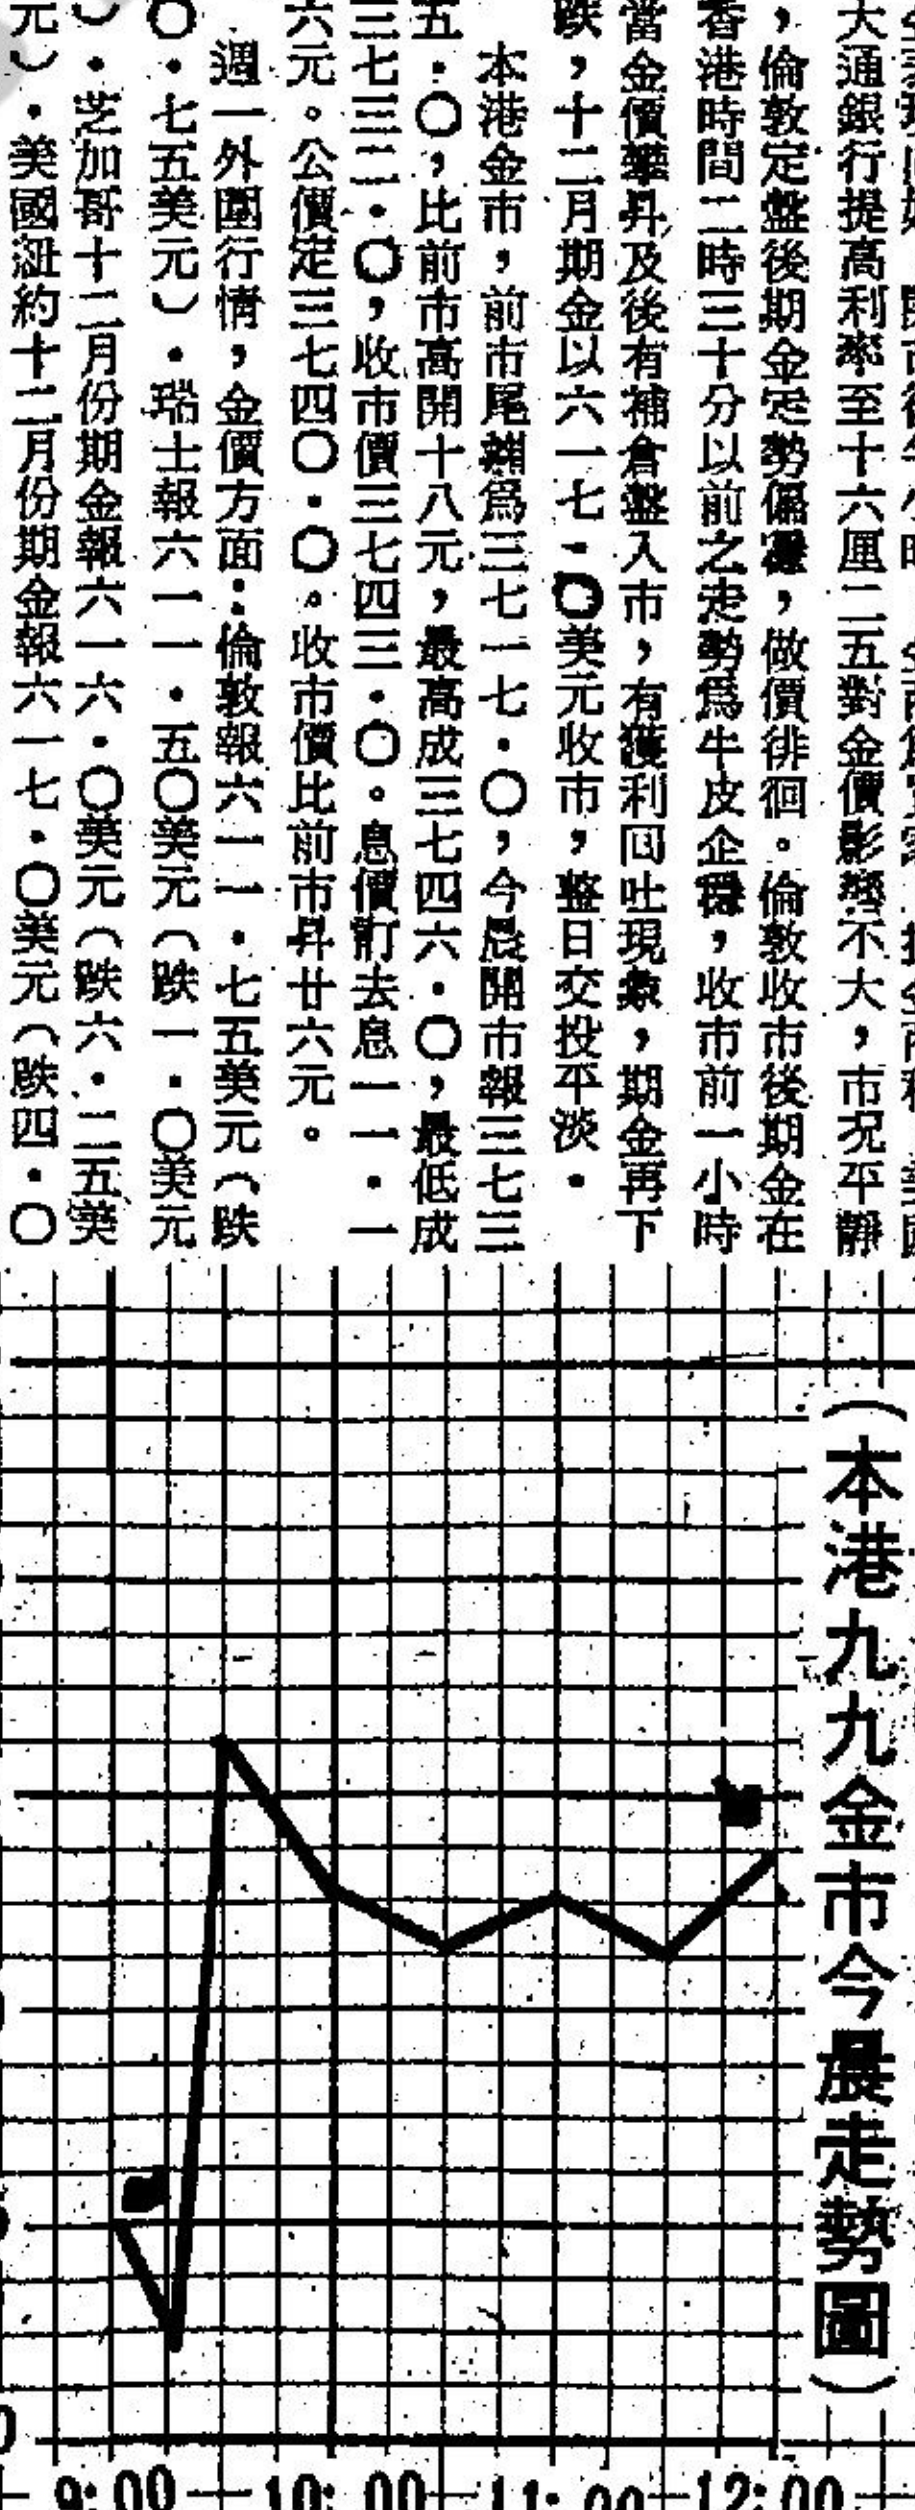 大通銀行提高利率至十六厘二五對金價影響不大，市况平靜
，倫敦定盤後期金走勢偏穩，做價徘徊。倫敦收市後期金在
香港時間二時三十分以前之走勢爲牛皮企穩，收市前一小時
當金價攀昇及後有補倉盤入市，有獲利回吐現象，期金再下
跌，十二月期金以六一七·〇美元收市，整日交投平淡·
本港金市，前市尾雜爲三七一七·〇，今晨開市報三七三
五·〇，比前市高開十八元，最高成三七四六·〇，最低成
三七三二·〇，收市價三七四三·〇。息價訂去息一一·一
六元。公價定三七四〇·〇。收市價比前市昇廿六元。
週一外圍行情，金價方面：倫敦報六一一·七五美元（跌
〇·七五美元）·瑞士報六一一·五〇美元（跌一·〇美元
）·芝加哥十二月份期金報六一六·〇美元（跌六·二五美
元）·美國紐約十二月份期金報六一七·〇美元（跌四·〇
（本港九九金市今晨走勢圖）
9:00 10:00 11:00 12:00